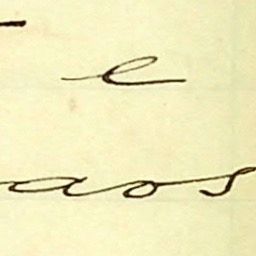 e
aos